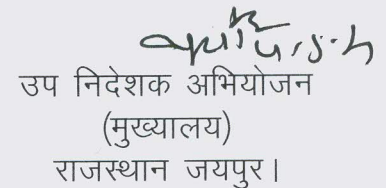 उप निदेशक अभियोजन
(मुख्यालय)
राजस्थान जयपुर।